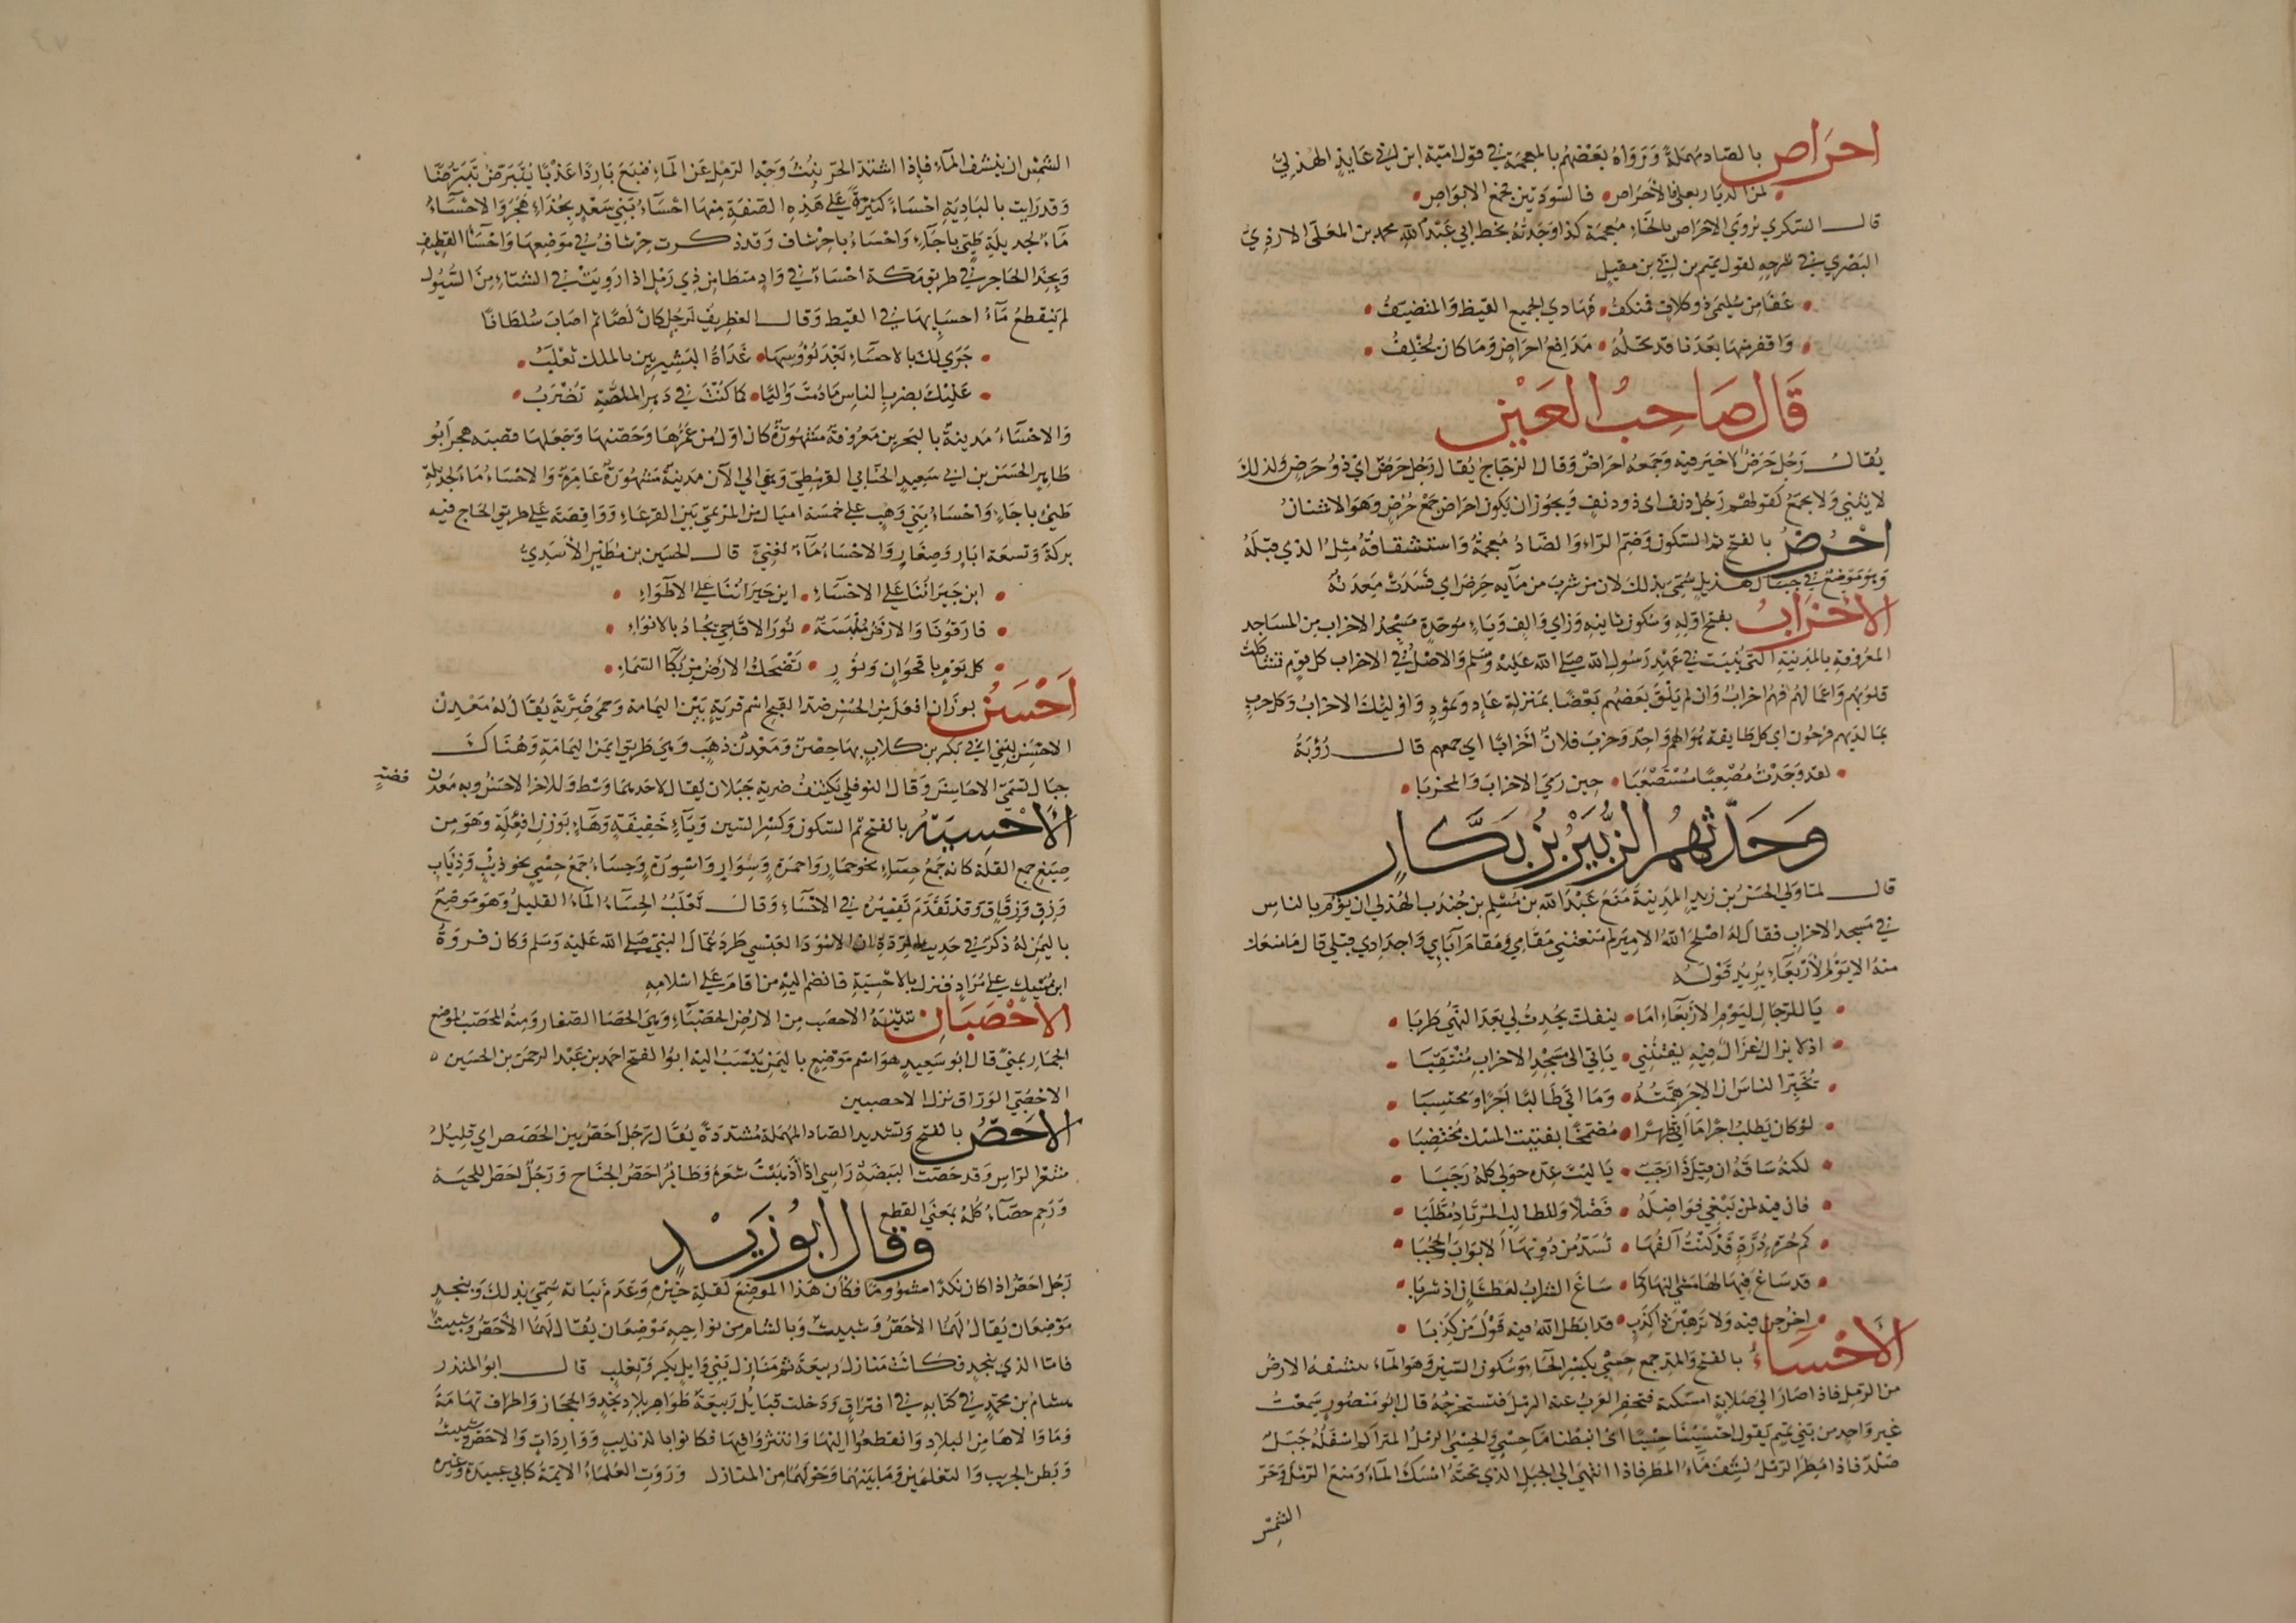 احراص بالصاد مهملة ورواه بعضهم بالمعجمة في قول امية ابن ابي عايذ الهذلي
لمن الديار بعلي فالاحراص فالسودتين فمجمع الابواص
قال السكري يروي الاحراص بالخاء معجمة كذا وجدته بخط ابي عبد الله محمد بن المعلى الازدي
البصري في شرحه لقول تميم بن ابي بن مقبل
عفا من سليمى ذو كلاف فمنكف فمهادي الجميع القيظ والمتضيف
واقفر منها بعد ما قد تحله مدافع احراض وما كان يخلف
قال صاحب العين
يقال رجل حرض لا خير فيه وجمعه احراض وقال الزجاج يقال رجل حرض اي ذو حرض ولذلك
لا يثني ولا يجمع كقولهم رجل دنف اي ذو دنف ويجوز ان يكون احراض جمع حرض وهو الاشنان
احرض بالفتح ثم السكون وضم الراء والضاد معجمة واستشقاقه مثل الذي قبله
وهو موضع في جبال هذيل سمي بذلك لان من شرب من مآيه حرض اي فسدت معدته
الاحزاب بفتح اوله وسكون ثانيه وزاي والف وباء موحدة مسجد الاحزاب من المساجد
المعروفة بالمدينة التي بنيت في عهد رسول الله صلى الله عليه وسلم والاصل في الاحزاب كل قوم تشاكلت
قلوبهم واعمالهم فهم احزاب وان لم يلق بعضهم بعضا بمنزلة عاد وثمود واولئك الاحزاب وكل حزب
بما لديهم فرحون اي كل طايفة هواهم واحد وحزب فلان احزابا اي جمعهم قال رؤبة
لقد وجدت مصعبا مستصعبا حين رمي الاحزاب والمحزبا
وحدثهم الزبير بن بكار
قال لما ولي الحسن بن زيد المدينة منع عبد الله بن مسلم بن جندب الهذلي ان يؤم بالناس
في مسجد الاحزاب فقال له اصلح الله الامير لم منعتني مقامي ومقام آبايي واجدادي قبلي قال ما منعك
منه الا يوم الاربعاء يريد قوله
يا للرجال ليوم الاربعاء اما ينفك يحدث لي بعد النهي طربا
اذ لا يزال غزال فيه يفتنني ياتي الى مسجد الاحزاب منتقبا
يخبر الناس ان الاجر همته وما اتى طالبا اجرا ومحتسبا
لو كان يطلب اجرا ما اتى ظهرا مضمخا بفتيت المسك مختضبا
لكنه ساقه ان قيل ذا رجب يا ليت عدة حولي كله رجبا
فان فيه لمن يبغي فواضله فضلا وللطالب المرتاد مطلبا
كم حرة درة قد كنت آلفها تسد من دونها الابواب والحجبا
قد ساغ فيها لها مشي النهار كما ساغ الشراب لعطشان اذ شربا
اخرجن فيه ولا ترهبن ذا كذب قد ابطل الله فيه قول من كذبا
الاحساء بالفتح والمد جمع حسي بكسر الحاء وسكون السين وهو الماء تنشفه الارض
من الرمل فاذا صار الي صلابة امسكته فتحفر العرب عنه الرمل فتستخرجه قال ابو منصور سمعت
غير واحد من بني تميم يقول احتسينا حسيا اي انبطنا ما حسي والحسي الرمل المتراكم اسفله جبل
صلد فاذا مطر الرمل نشف ماء المطر فاذا انتهى الي الجبل الذي تحته امسك الماء ومنع الرمل وحر
الشمس
الشمس ان ينشف الماء فاذا اشتد الحر نبث وجه الرمل عن الماء فنبع باردا عذبا يتبرض تبرضا
وقد رايت بالبادية احساء كثيرة على هذه الصفة منها احساء بني سعد بحذاء هجر والاحساء
ماء لجديلة طيي باجاء واحساء باحرشاف وقد ذكرت حرشاف في موضعها واحساء القطيف
وبحذا الحاجر في طريق مكة احساء في واد متطامن ذي رمل اذا رويت في الشتاء من السيول
لم ينقطع ماء احسايها في القيظ وقال الغطريف لرجل كان لصا ثم اصاب سلطانا
جري لك بالاحساء بعد بؤوسها غداة القشيريين بالملك تغلب
عليك بضرب الناس ما دمت واليا كما كنت في دهر الملصة تضرب
والاحساء مدينة بالبحرين معروفة مشهورة كان اول من عمرها وحصنها وجعلها قصبة هجر ابو
طاهر الحسن بن ابي سعيد الجنابي القرمطي وهي الي الآن مدينة مشهورة عامرة والاحساء ماء لجديلة
طيئ باجاء واحساء بني وهب على خمسة اميال من المرتمي بين القرعاء وواقصة على طريق الحاج فيه
بركة وتسعة ابار وصغار والاحساء ماء لغني قال الحسين بن مطير الاسدي
اين جيراننا على الاحساء اين جيراننا على الاطواء
فارقونا والارض ملبسة نور الاقاحي تجاد بالانواء
كل يوم باقحوان ونور تضحك الارض من بكا السماء
احسن بوزن افعل من الحسن ضد القبح اسم قرية بين اليمامة وحمى ضرية يقال له معدن
الاحسن لبني ابي بكر بن كلاب بها حصن ومعدن ذهب وهي طريق ايمن اليمامة وهناك
جبال تسمى الاحاسن وقال النوفلي يكتنف ضرية جبلان يقال لاحدهما وسط وللاخر الاحسن وبه معدن فضة
الأحسية بالفتح ثم السكون وكسر السين وياء خفيفة وهاء بوزن افعلة وهو من
صيغ جمع القلة كانه جمع حساء نحو حمار واحمرة وسوار واسورة وحساء جمع حسي نحو ذيب وذياب
وزق وزقاق وقد تقدم تفسيره في الاحساء وقال ثعلب الحساء الماء القليل وهو موضع
باليمن له ذكر في حديث الردة ان الاسود العنسي طرد عمال النبي صلى الله عليه وسلم وكان فروة
ابن مسيك على مراد فنزل بالاحسية فانضم اليه من اقام على اسلامه
الاحصبان تثنية الاحصب من الارض الحصباء وهي الحصا الصغار ومنه المحصب لموضع
الجمار بمنى قال ابو سعيد هو اسم موضع باليمن ينسب اليه ابو الفتح احمد بن عبد الرحمن بن الحسين
الاحصبي الوراق نزل الاحصبين
الاحص بالفتح وتشديد الصاد المهملة مشددة يقال رجل احص بين الحصص اي قليل
شعر الراس وقد حصت البيضة راسي اذا اذهبت شعره وطائر احص الجناح ورجل احص اللحية
ورحم حصاء كله بمعنى القطع
وقال ابو زيد
رجل احص اذا كان نكدا مشؤوما فكأن هذا الموضع لقلة خيره وعدم نباته سمي بذلك وبنجد
موضعان يقال لهما الاحص وشبيث وبالشام من نواحيه موضعان يقال لهما الأحص وشبيث
فاما الذي بنجد فكانت منازل ربيعة ثم منازل بني وايل بكر وتغلب قال ابو المنذر
هشام بن محمد في كتابه في افتراق ودخلت قبايل ربيعة ظواهر بلاد نجد والحجاز واطراف تهامة
وما والاها من البلاد وانقطعوا اليها وانتثروا فيها فكانوا بالذنايب وواردات والاحص وشبيث
وبطن الجريب والتغلمين وما بينهما وحولهما من المنازل وروت العلماء الايمة كابي عبيدة وغيره